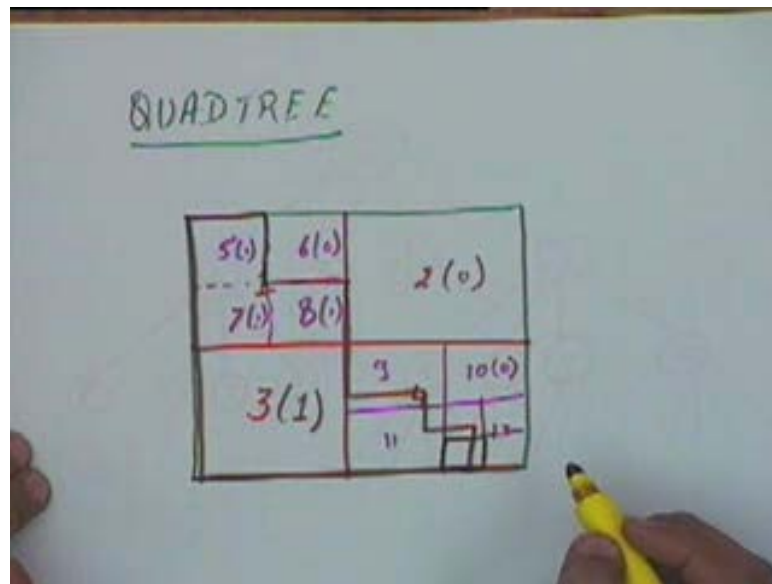 QUADTREE
5(1) 6(0)
2(0)
7(1) 8(1)
9 10(0)
3(1)
11